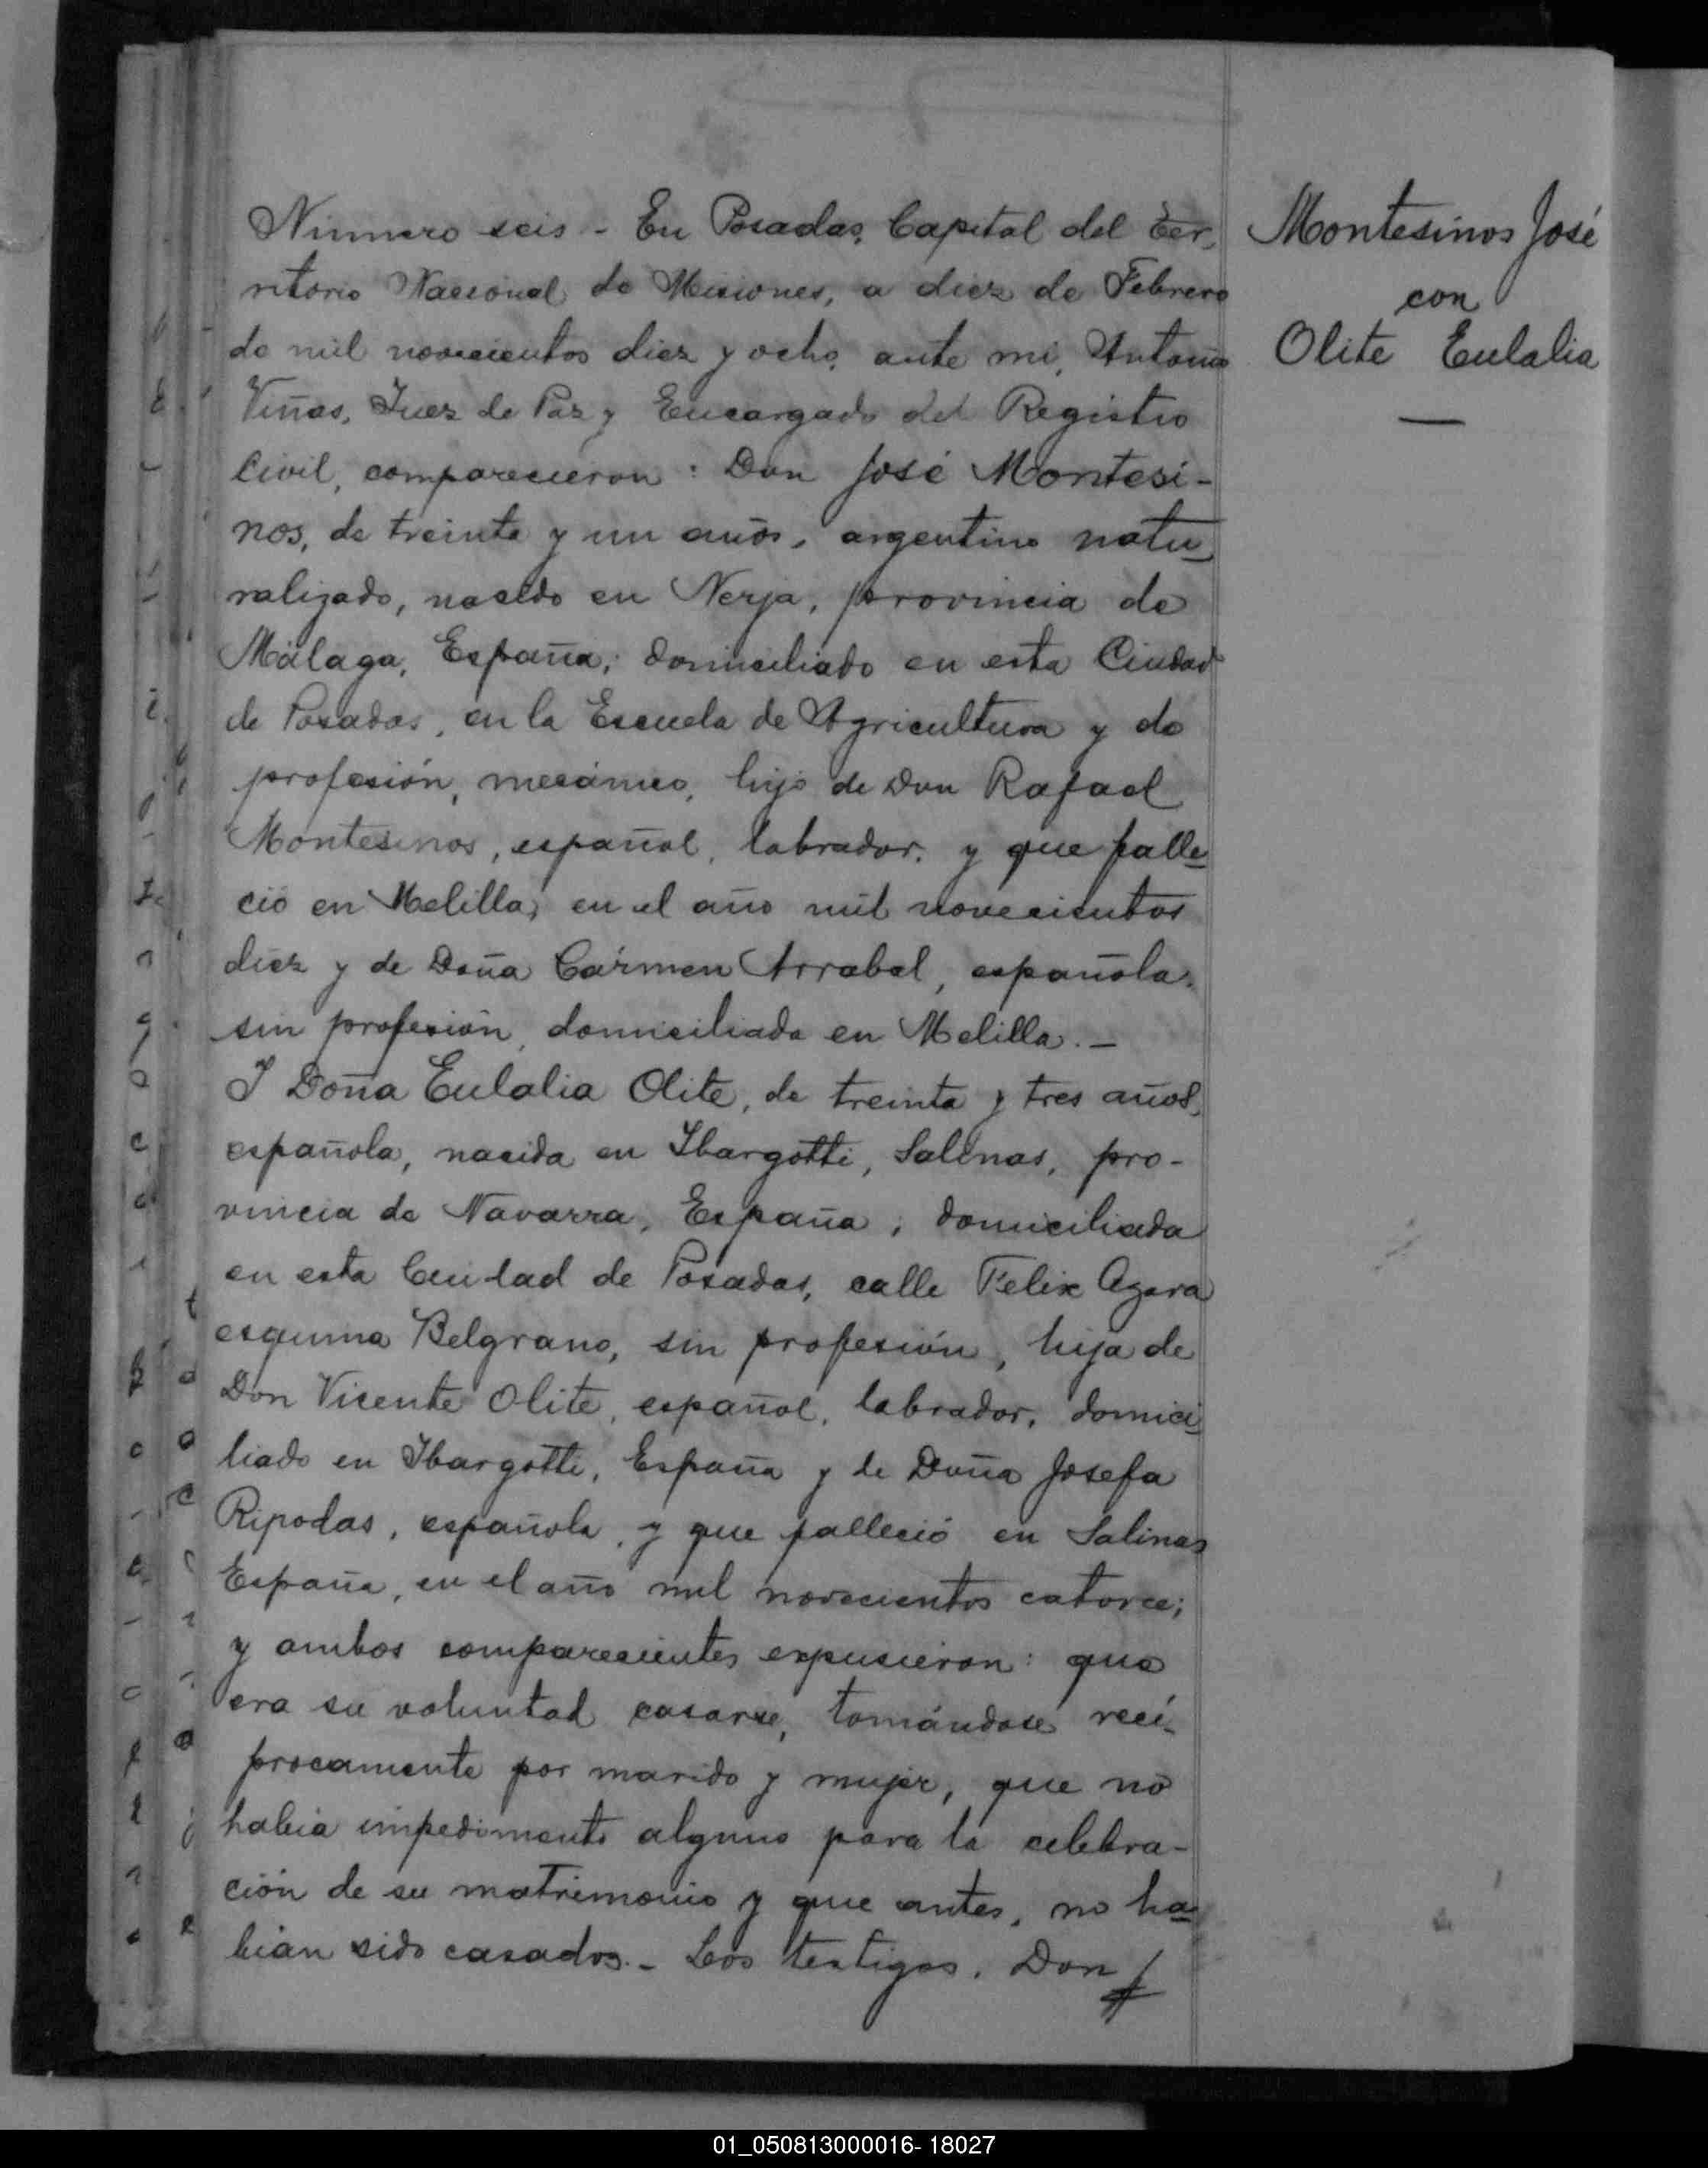 Número seis - En Posadas, Capital del Ter-
ritorio Nacional de Misiones, a diez de Febrero
de mil novecientos diez y ocho, ante mi, Antonio
Viñas, Juez de Paz y Encargado del Registro
Civil, comparecieron: Don José Montesi-
nos, de treinta y un años, argentino natu-
ralizado, nacido en Nerja, provincia de
Málaga, España; domiciliado en esta Ciudad
de Posadas, en la Escuela de Agricultura y de
profesión, mecánico, hijo de Don Rafael
Montesinos, español, labrador, y que falle-
ció en Melilla, en el año mil novecientos
diez y de Doña Cármen Arrabal, española,
sin profesión, domiciliada en Melilla.-
Y Doña Eulalia Olite, de treinta y tres años,
española, nacida en Ibargotti, Salinas, pro-
vincia de Navarra, España; domiciliada
en esta Ciudad de Posadas, calle Felix Azara
esquina Belgrano, sin profesión, hija de
Don Vicente Olite, español, labrador, domici-
liado en Ibargotti, España y de Doña Josefa
Ripodas, española, y que falleció en Salinas
España, en el año mil novecientos catorce;
y ambos comparecientes expusieron: que
era su voluntad casarse, tomándose reci-
procamente por marido y mujer, que no
habia impedimento alguno para la celebra-
ción de su matrimonio y que antes, no ha-
bian sido casados.- Los testigos, Don
Montesinos José
con
Olite Eulalia
01_050813000016- 18027